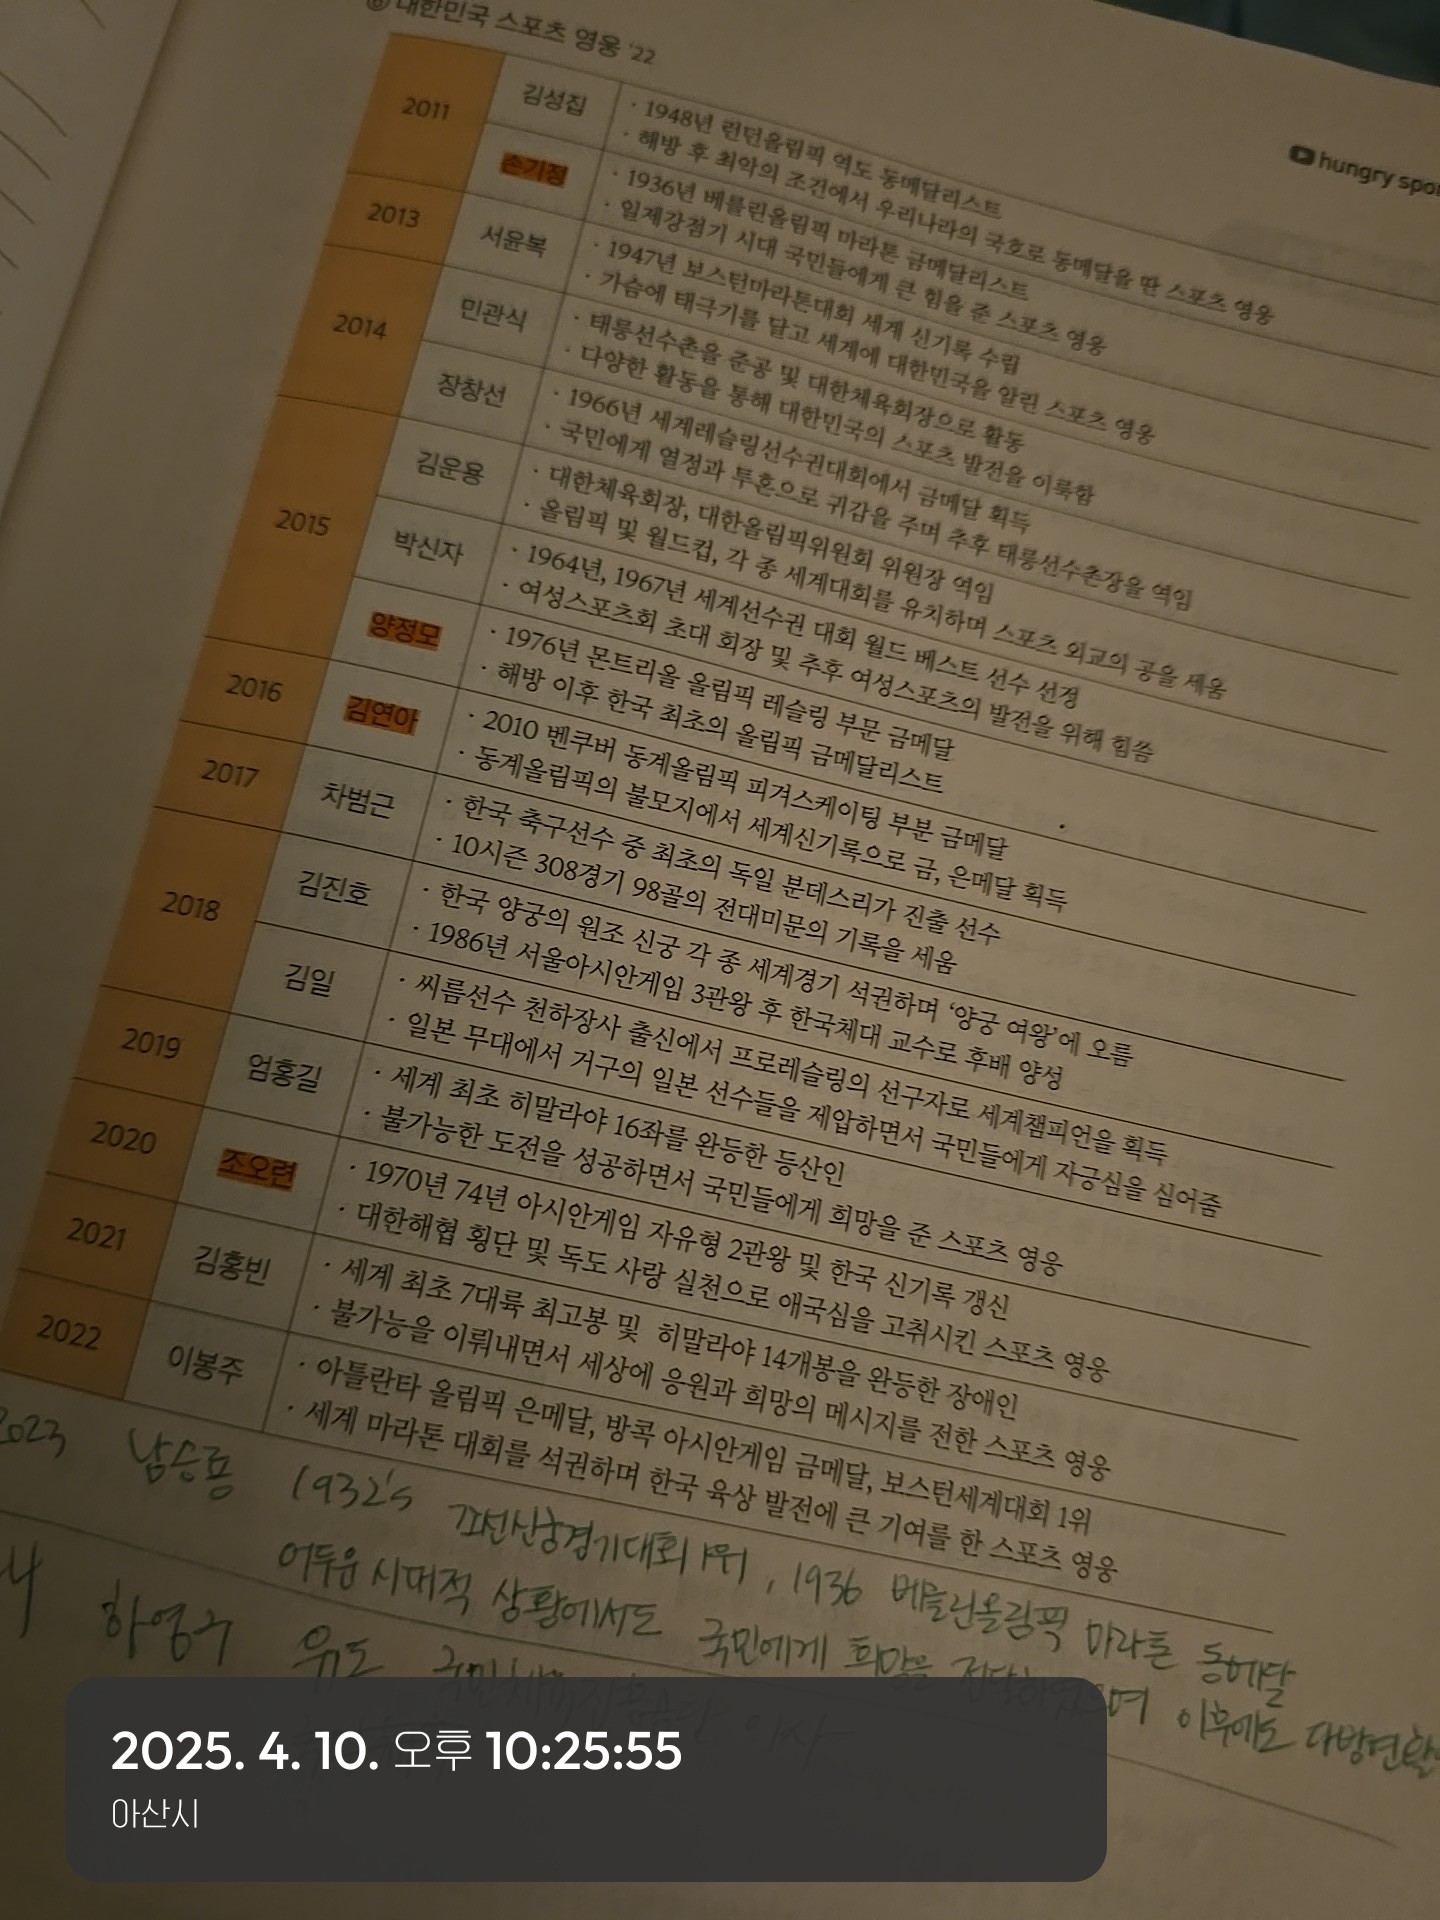 ⑥ 대한민국 스포츠 영웅 '22
hungry spor
2011
김성집
· 1948년 런던올림픽 역도 동메달리스트
· 해방 후 최악의 조건에서 우리나라의 국호로 동메달을 딴 스포츠 영웅
손기정
· 1936년 베를린올림픽 마라톤 금메달리스트
· 일제강점기 시대 국민들에게 큰 힘을 준 스포츠 영웅
2013
서윤복
· 1947년 보스턴마라톤대회 세계 신기록 수립
· 가슴에 태극기를 달고 세계에 대한민국을 알린 스포츠 영웅
2014
민관식
· 태릉선수촌을 준공 및 대한체육회장으로 활동
· 다양한 활동을 통해 대한민국의 스포츠 발전을 이룩함
장창선
· 1966년 세계레슬링선수권대회에서 금메달 획득
· 국민에게 열정과 투혼으로 귀감을 주며 추후 태릉선수촌장을 역임
2015
김운용
· 대한체육회장, 대한올림픽위원회 위원장 역임
· 올림픽 및 월드컵, 각 종 세계대회를 유치하며 스포츠 외교의 공을 세움
박신자
· 1964년, 1967년 세계선수권 대회 월드 베스트 선수 선정
· 여성스포츠회 초대 회장 및 추후 여성스포츠의 발전을 위해 힘씀
양정모
· 1976년 몬트리올 올림픽 레슬링 부문 금메달
· 해방 이후 한국 최초의 올림픽 금메달리스트
2016
김연아
· 2010 벤쿠버 동계올림픽 피겨스케이팅 부분 금메달
· 동계올림픽의 불모지에서 세계신기록으로 금, 은메달 획득
2017
차범근
· 한국 축구선수 중 최초의 독일 분데스리가 진출 선수
· 10시즌 308경기 98골의 전대미문의 기록을 세움
2018
김진호
· 한국 양궁의 원조 신궁 각 종 세계경기 석권하며 ‘양궁 여왕’에 오름
· 1986년 서울아시안게임 3관왕 후 한국체대 교수로 후배 양성
김일
· 씨름선수 천하장사 출신에서 프로레슬링의 선구자로 세계챔피언을 획득
· 일본 무대에서 거구의 일본 선수들을 제압하면서 국민들에게 자긍심을 심어줌
2019
엄홍길
· 세계 최초 히말라야 16좌를 완등한 등산인
· 불가능한 도전을 성공하면서 국민들에게 희망을 준 스포츠 영웅
2020
조오련
· 1970년 74년 아시안게임 자유형 2관왕 및 한국 신기록 갱신
· 대한해협 횡단 및 독도 사랑 실천으로 애국심을 고취시킨 스포츠 영웅
2021
김홍빈
· 세계 최초 7대륙 최고봉 및 히말라야 14개봉을 완등한 장애인
· 불가능을 이뤄내면서 세상에 응원과 희망의 메시지를 전한 스포츠 영웅
2022
이봉주
· 아틀란타 올림픽 은메달, 방콕 아시안게임 금메달, 보스턴세계대회 1위
· 세계 마라톤 대회를 석권하며 한국 육상 발전에 큰 기여를 한 스포츠 영웅
2023 남승룡 1932's 1위, 1936 베를린올림픽 마라톤 동메달
어두운 시대적 상황에서도 국민에게 희망을 이후에도
유도
2025. 4. 10. 오후 10:25:55
아산시